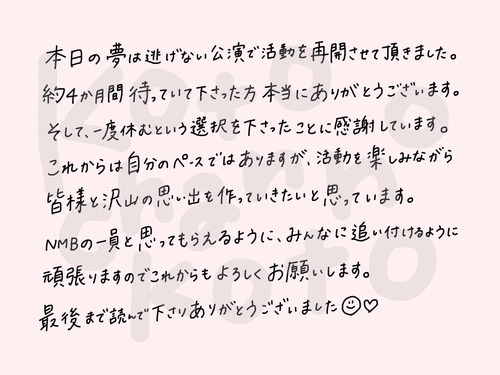 本日の夢は逃げない公演で活動を再開させて頂きました。
約4か月間待っていて下さった方本当にありがとうございます。
そして、一度休むという選択を下さったことに感謝しています。
これからは自分のペースではありますが、活動を楽しみながら
皆様と沢山の思い出を作っていきたいと思っています。
NMBの一員と思ってもらえるように、みんなに追い付けるように
頑張りますのでこれからもよろしくお願いします。
最後まで読んで下さりありがとうございました☺♡